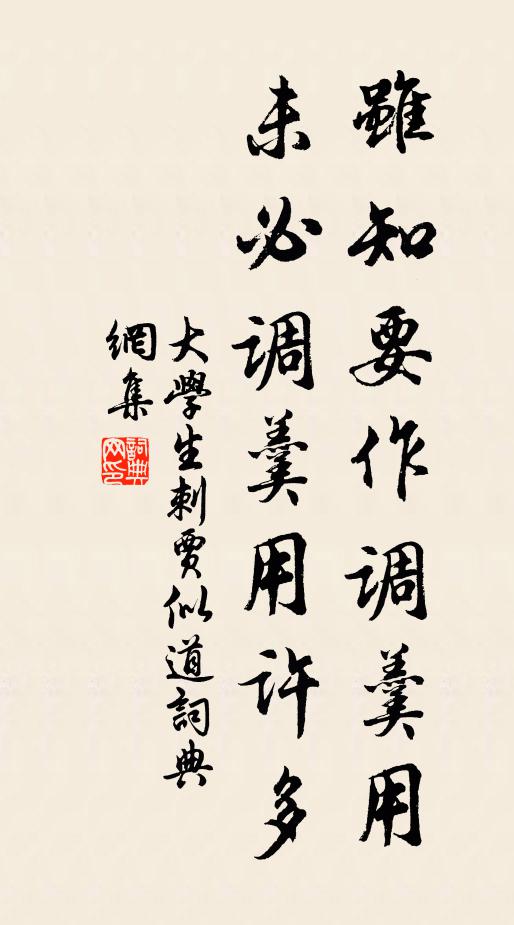 雖知要作調羹用
未必調羹用許多
大學生刺賈似道詞典
網集
詞典網印